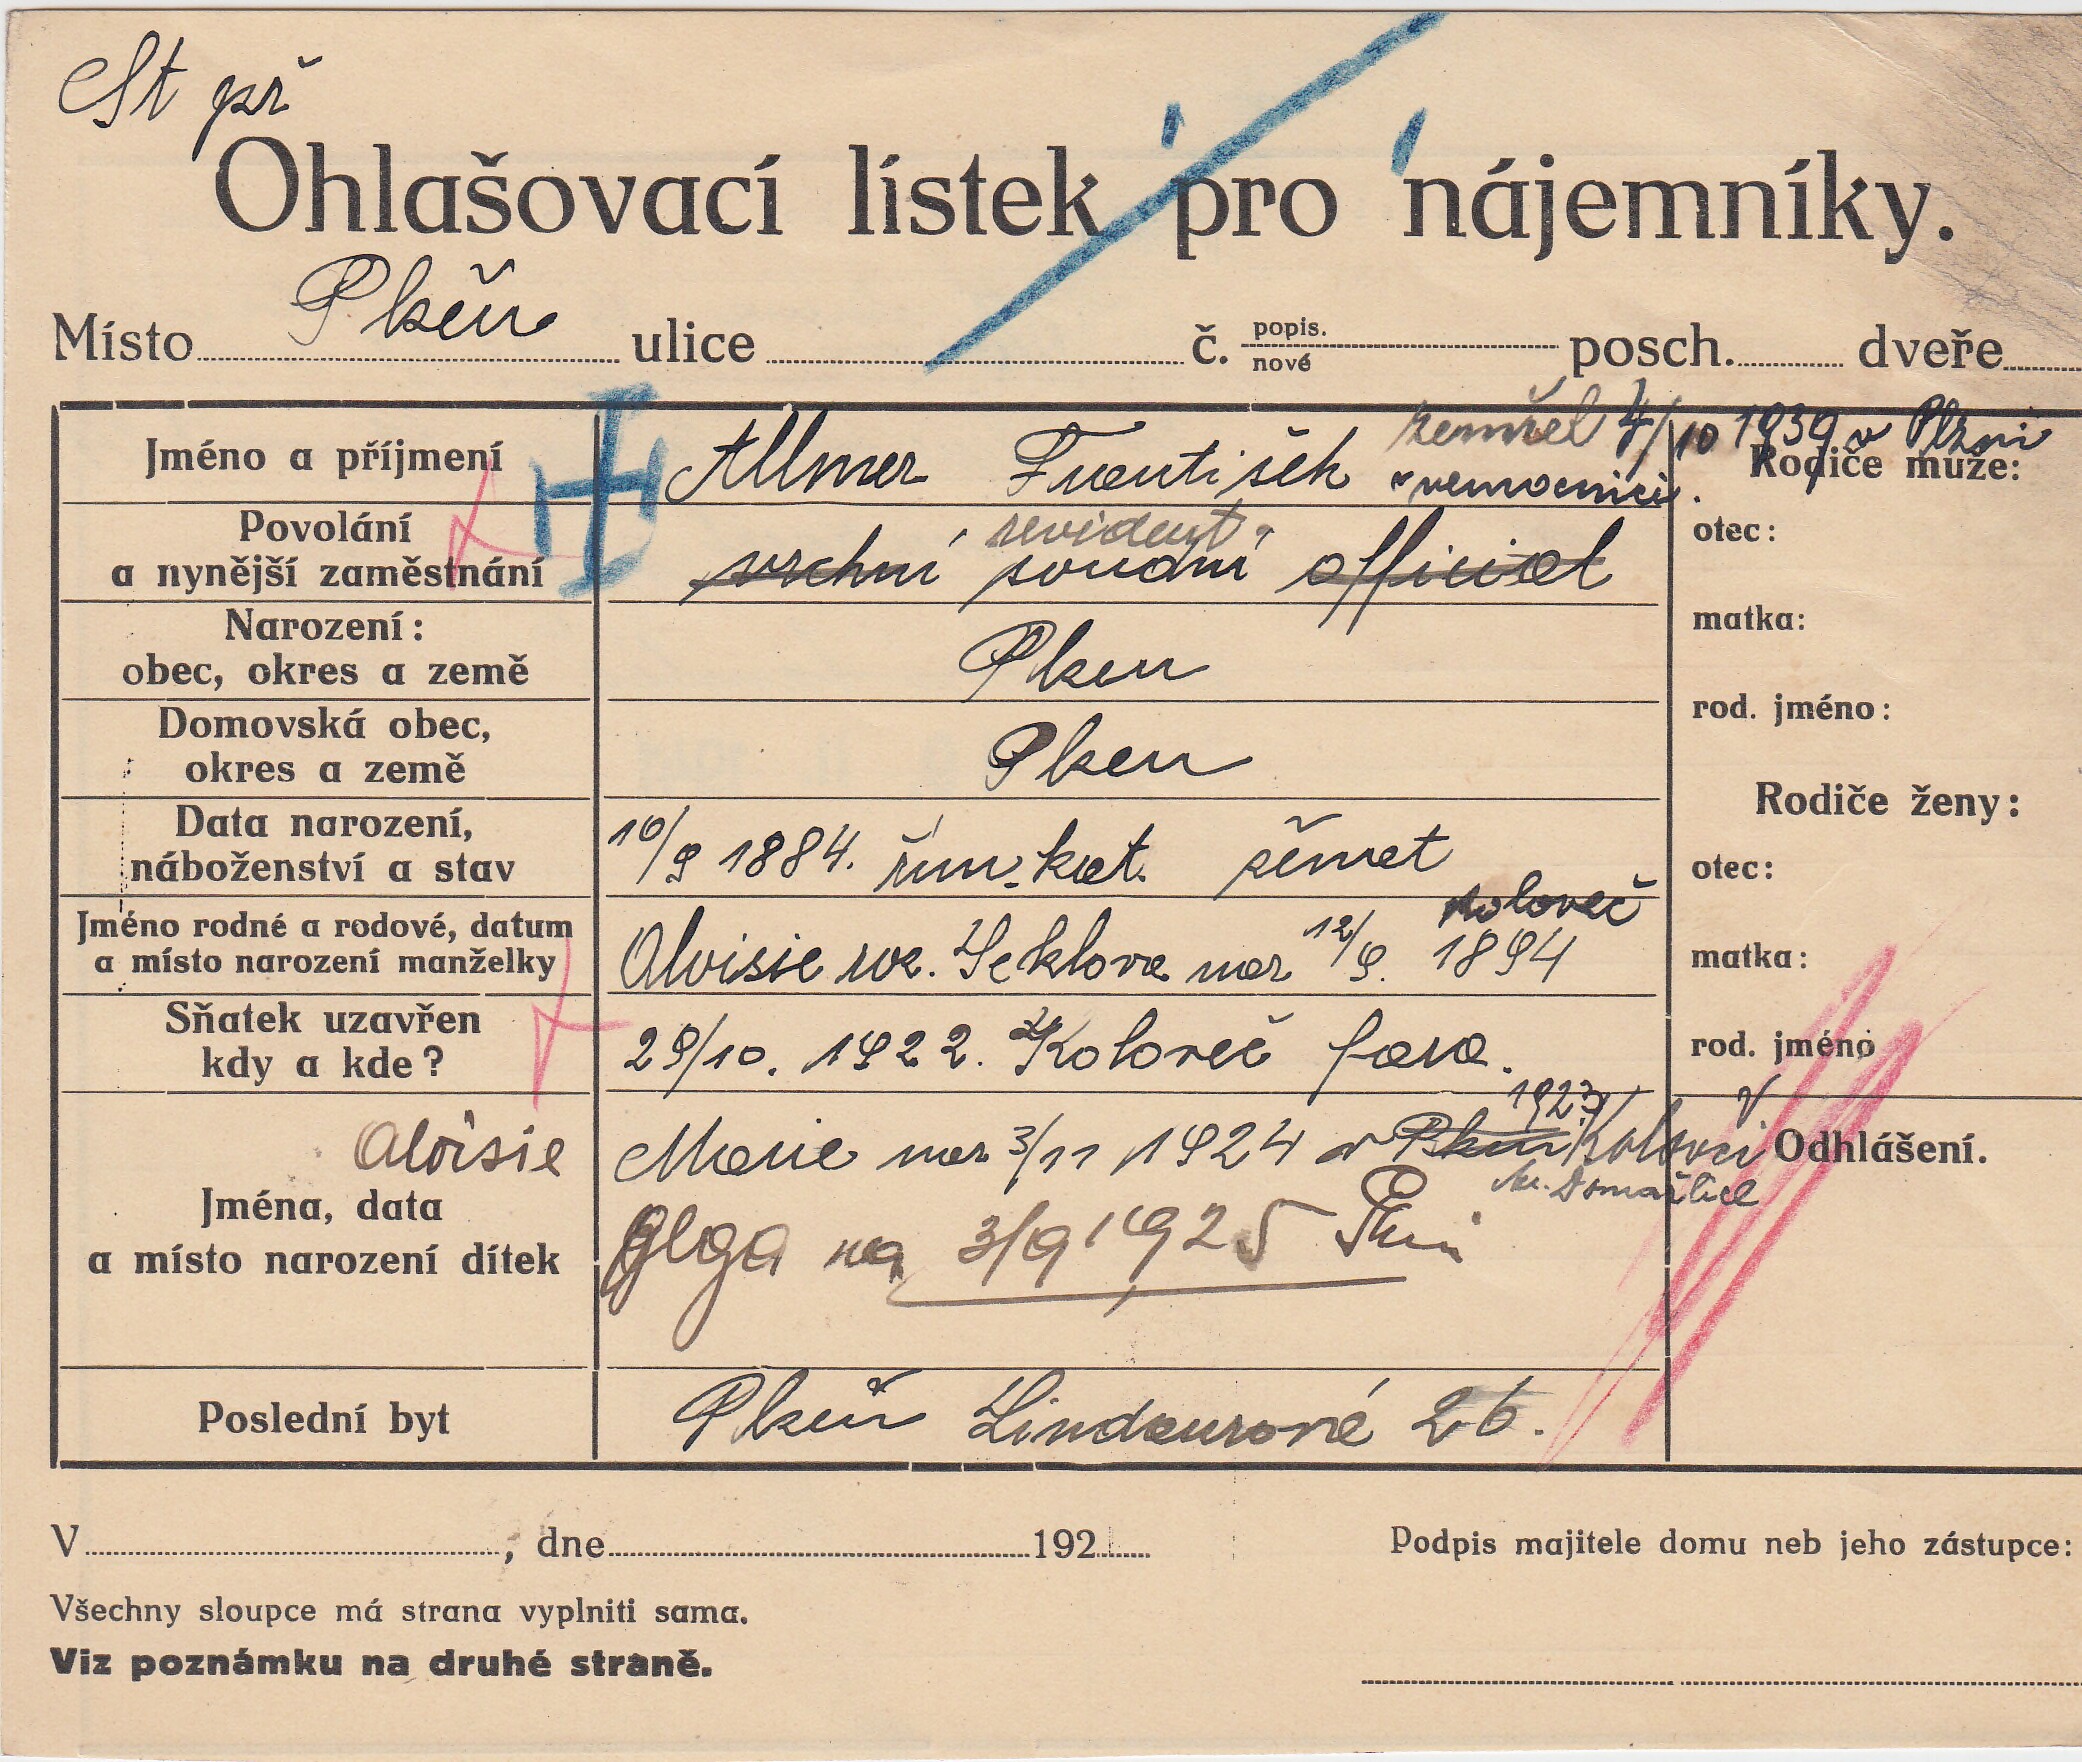 St př
Ohlašovací lístek pro nájemníky.
Místo Plzeň ulice č. popis. nové posch. dveře
Jméno a příjmení Allmer František zemřel 4/10 1939 v Plzni
v nemocnici. Rodiče muže:
Povolání
a nynější zaměstnání
revident
vrchní soudní official
otec:
Narození:
obec, okres a země
Plzen
matka:
Domovská obec,
okres a země
Plzen
rod. jméno:
Data narození,
náboženství a stav
10/9 1884. řím. kat. ženat
Rodiče ženy:
otec:
Jméno rodné a rodové, datum
a místo narození manželky
Koloveč
Aloisie roz. nar 12/9. 1894
matka:
Sňatek uzavřen
kdy a kde?
29/10. 1922. Koloveč fara.
rod. jméno
Aloisie
Jména, data
a místo narození dítek
1923
Marie nar 3/11 1924 v Plzni Kolovči
Domažlice
Olga na 3/9 1925
Odhlášení.
Poslední byt
Plzeň Lindaurové 26.
V , dne 192
Podpis majitele domu neb jeho zástupce:
Všechny sloupce má strana vyplniti sama.
Viz poznámku na druhé straně.